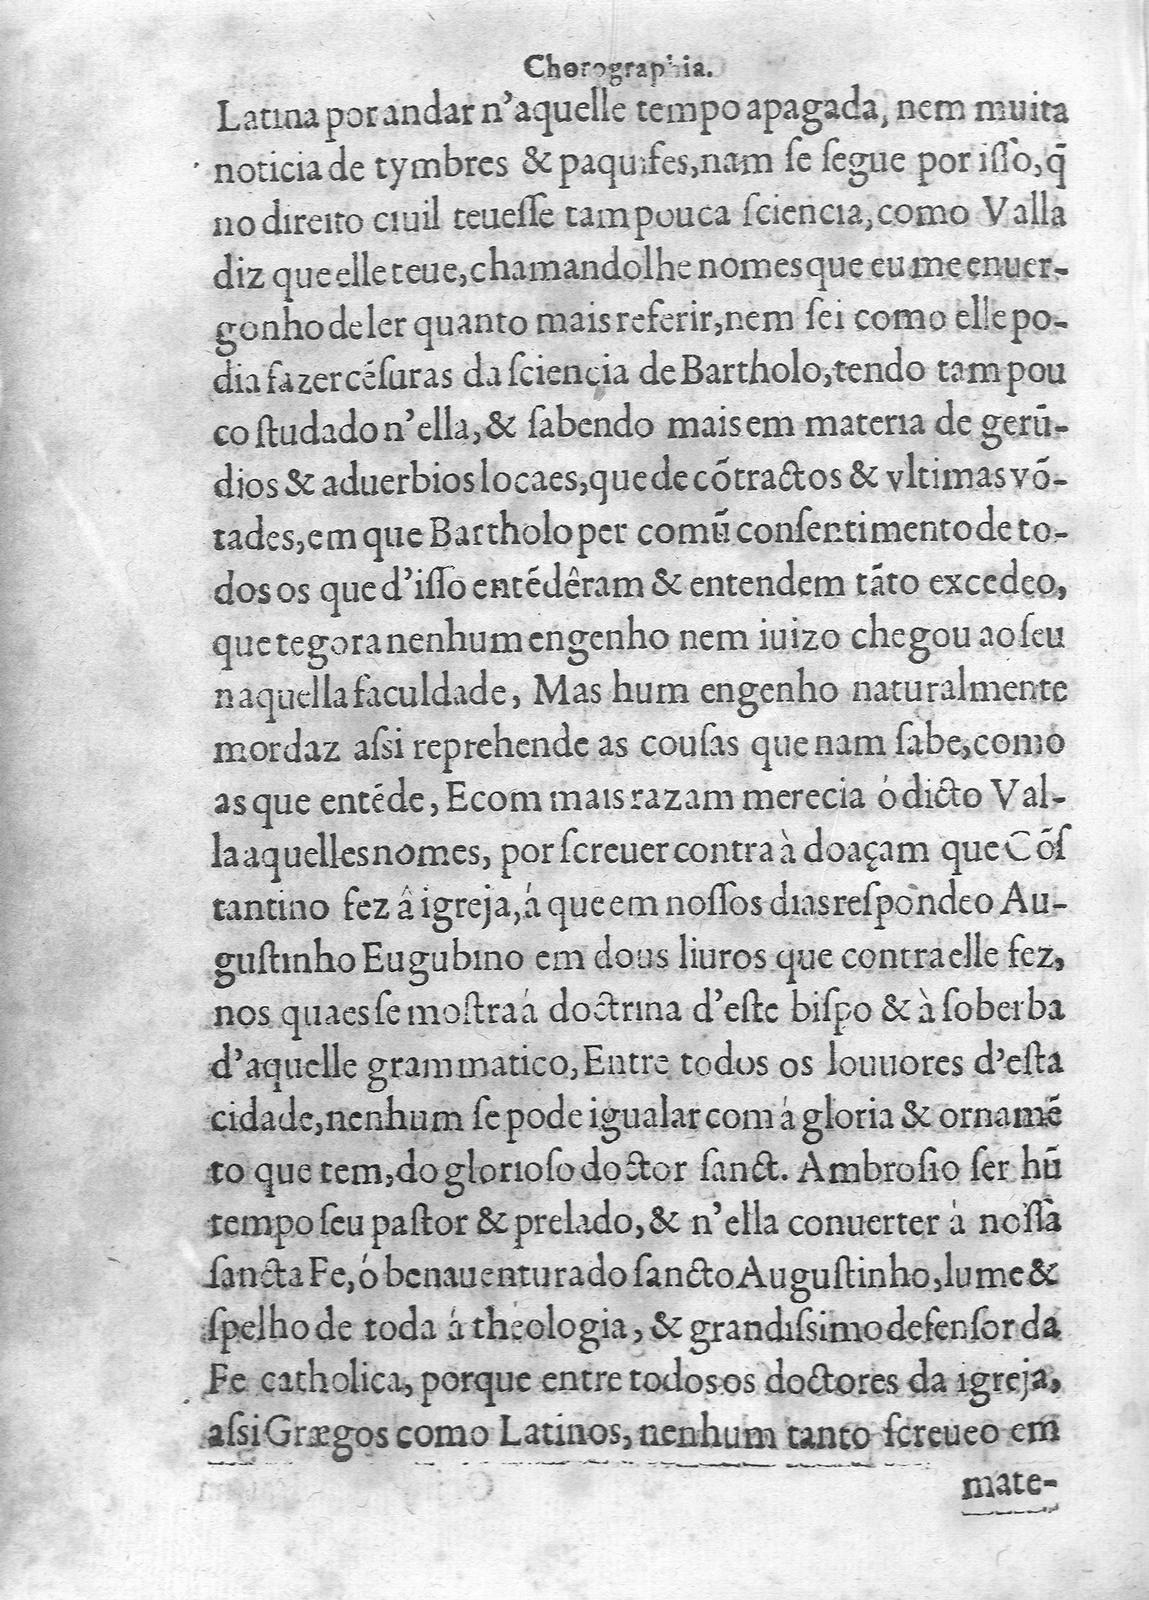 Chorographia.
Latina por andar n'aquelle tempo apagada, nem muita
noticia de tymbres & paquifes, nam ſe ſegue por iſſo, q̃
no direito ciuil teueſſe tam pouca ſciencia, como Valla
diz que elle teue, chamandolhe nomes que eu me enuer-
gonho de ler quanto mais referir, nem ſei como elle po-
dia fazer cẽſuras da ſciencia de Bartholo, tendo tam pou
co ſtudado n'ella, & ſabendo mais em materia de gerũ-
dios & aduerbios locaes, que de cõtractos & vltimas võ-
tades, em que Bartholo per comũ conſentimento de to-
dos os que d'iſſo entẽdêram & entendem tãto excedeo,
que tegora nenhum engenho nem iuizo chegou ao ſeu
naquella faculdade, Mas hum engenho naturalmente
mordaz aſsi reprehende as couſas que nam ſabe, como
as que entẽde, E com mais razam merecia ó dicto Val-
la aquelles nomes, por ſcreuer contra à doaçam que Cõſ
tantino fez â igreja, á que em noſſos dias reſpondeo Au-
guſtinho Eugubino em dous liuros que contra elle fez,
nos quaes ſe moſtra á doctrina d'eſte biſpo & à ſoberba
d'aquelle grammatico, Entre todos os louuores d'eſta
cidade, nenhum ſe pode igualar com á gloria & ornamẽ
to que tem, do glorioſo doctor ſanct. Ambroſio ſer hũ
tempo ſeu paſtor & prelado, & n'ella conuerter à noſſa
ſancta Fe, ó benauenturado ſancto Auguſtinho, lume &
ſpelho de toda á theologia, & grandiſsimo defenſor da
Fe catholica, porque entre todos os doctores da igreja,
aſsi Græegos como Latinos, nenhum tanto ſcreueo em
mate-